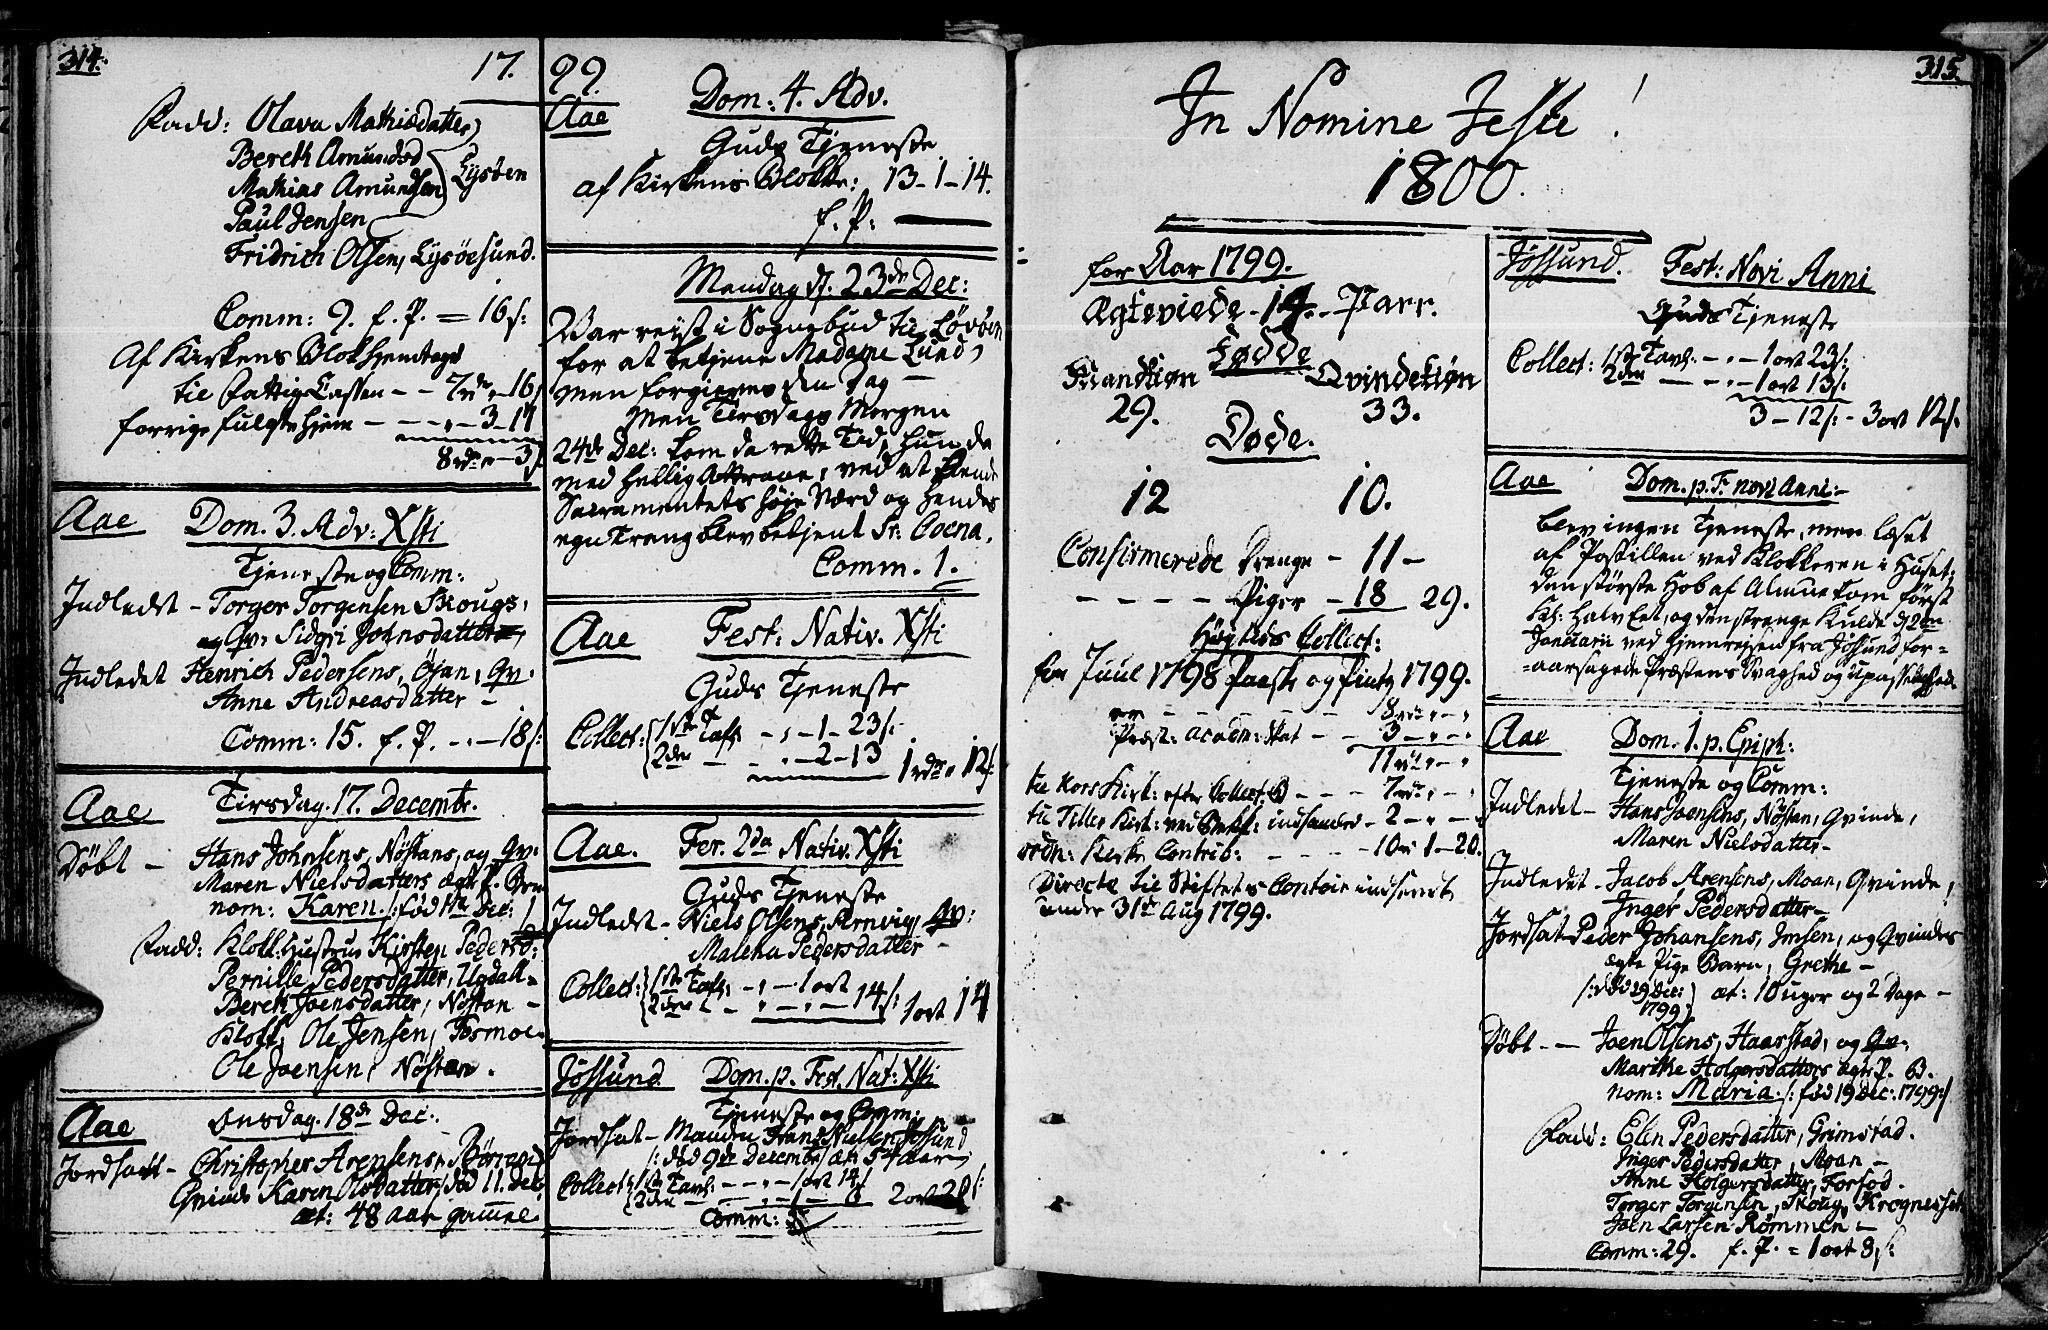 314.
17.
Fadd: Olava Mathisdatter
Bereth Amundsd
Mathias Amundsen
Lysöen
Paul Jensen
Fridrich Olsen, Lysöesund.
Comm: 9. f. P. = 16 s:
Af Kirkens Blok hemtage
til Fattig Cassen - - 7 rd - 16
forrige fulgte hiem - - - 3 - 11
8 rdr - 3
Aae Dom. 3. Adv: Xsti
Tjeneste og Comm:
Indledet - Torger Torgersen Skougs,
og Qv: Sidgri Johnsdatter
Indledet Henrich Pedersens, Öjan, Qv.
Anne Andreasdatter -
Comm: 15. f. P. - - 18 s:
Aae Tirsdag. 17. Decembr.
Döbt - Hans Johnsens, Nöstans, og Qv:
Maren Nielsdatters ægte P. Brn
nom: Karen /: föd 1te Dec: /
Fadd: Klokk: Hustrue Kirsten Pedersd:
Pernille Pedersdatter, Updall -
Bereth Joensdatter, Nöstan -
Klokk. Ole Jensen, Tesmoe -
Ole Joensen, Nöstan.
Aae Onsdag. 18de Dec.
Jordsatt - Christopher Arensens,
Qvinde Karen Olsdatter, död 11. Dec
æt: 48 aar gammel
99.
Aae Dom: 4. Adv.
Guds Tjeneste
af Kirkens Blokke: 13 - 1 - 14.
f. P: —
Mandag d. 23de Dec:
Var reyst i Sognebud til Lövöen
for at betjene Madame Lund,
men forgieves den Dag -
Men Tirsdags Morgen
24de Dec: kom da rette Tid, hun da
med hellig Attraae, ved at kiende
Sacramentets höje Værd og hendes
egn Trang blev betjent Sr: Coena.
Comm. 1.
Aae Fest: Nativ. Xsti
Guds Tjeneste
Collect: 1ste Tavl - , - 1 - 23 s:
2den - - , - 2 - 13 1 rdr " 12 s
Aae. Fer. 2da Nativ. Xsti
Guds Tjeneste
Indledet - Niels Olsens, Arnvig, Qv:
Malena Pedersdatter -
Collect: 1ste Tavl. - , - 1 ort
2den - - , - - 14 s: 1 ort 14
Jössund Dom. p. Fest. Nat: Xsti
Tjeneste og Comm:
Jordsat - Manden Hans Nielsen Jössund
/: död 9de Decembr / æt: 54 aar
Collect: 1ste Tavl: - - , - 1 ort 14 s
2den - - - 1 - 6 2 ort 20 s:
Comm: 5
315.
In Nomine Jesu!
1800.
for Aar 1799.
Ægteviede - 14. - Parr.
Födde
Mandkiön Qvindekiön
29. 33.
Döde.
12 10.
Confirmerede Drenge - 11 -
- - - - Piger - 18 29.
Höytids Collect:
for Juul 1798 Paaske og Pintz 1799.
- - - - - - 8 rdr " - "
Præst: - - 3 - " - "
11 rdr " - "
til Kors Kirk: efter Collect: - - - 7 rdr " - "
til Tiller Kirk: ved indsamled - 2 - " - "
ordn: Kirke Contrib: - - - - 10 - 1 - 20.
Directe til Stiftets Contoir indsendt
under 31te Aug 1799.
Jössund. Fest: Novi Anni
Guds Tjeneste
Collect: 1ste Tavl. - , - 1 ort 23 s:
2den - - , - 1 ort 13 s:
3 - 12 s: - 3 ort 12 s.
Aae Dom. p. F. novi Anni: -
blev ingen Tjeneste, men læset
af Postillen ved Klokkeren i Huset;
den störste Hob af Almue kom först
Kl: halv Eet, og den strenge Kulde d. 2den
Januarii ved Hjemreysen fra Jössund for=
=aarsagede Præstens Svaghed og Upasselighed
Aae Dom. 1. p. Epiph:
Tjeneste og Comm:
Indledet - Hans Joensens, Nöstan, Qvinde,
Maren Nielsdatter -
Indledet - Jacob Arensens, Moan, Qvinde,
Inger Pedersdatter -
Jordsat Peder Johansens, Imsen, og Qvindes
ægte Pige Barn, Grethe -
/: död 29 Dec: 1799 æt: 10 uger og 2 Dage -
Döbt - - Joen Olsens, Haarstad, og Qv:
Marithe Holgersdatters ægte P. B.
nom: Maria. /: föd 19 Dec: 1799 :/
Fadd: Elen Pedersdatter, Grimstad.
Inger Pedersdatter, Moan -
Anne Holgersdatter, Forsöd.
Torger Torgersen, Skoug,
Joen Larsen Römmen -
Comm: 29. f. P. = 1 ort 8 s: